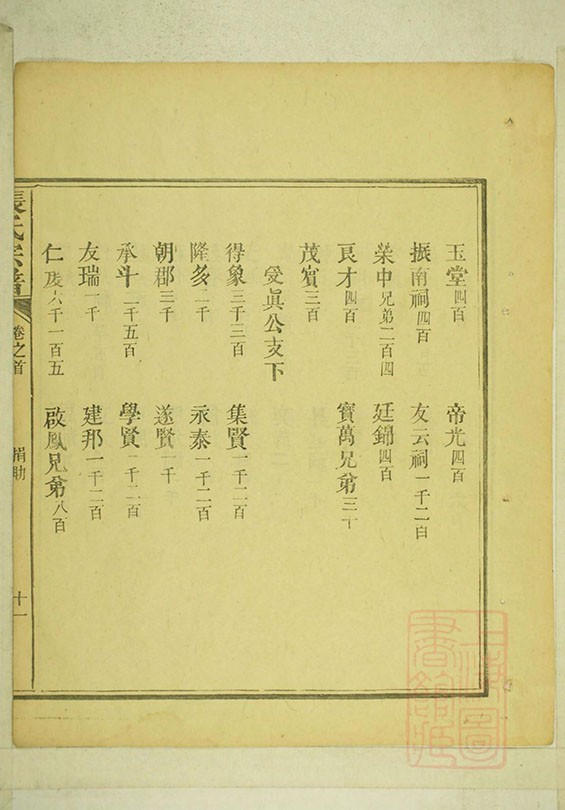 玉堂四百 帝光四百
振南祠四百 友云祠一千二百
榮中兄弟二百四 廷錦四百
良才四百 寶萬兄弟三千
茂賓三百
受眞公支下
得象三千三百 集賢一千二百
隆多二千 永泰一千二百
朝郡三千 遂賢一千
承斗一千五百 學賢一千二百
友瑞一千 建邦一千二百
仁 六千一百五 啟鳳兄弟八百
張氏宗譜 卷之首 捐助 十一
上海圖書館藏